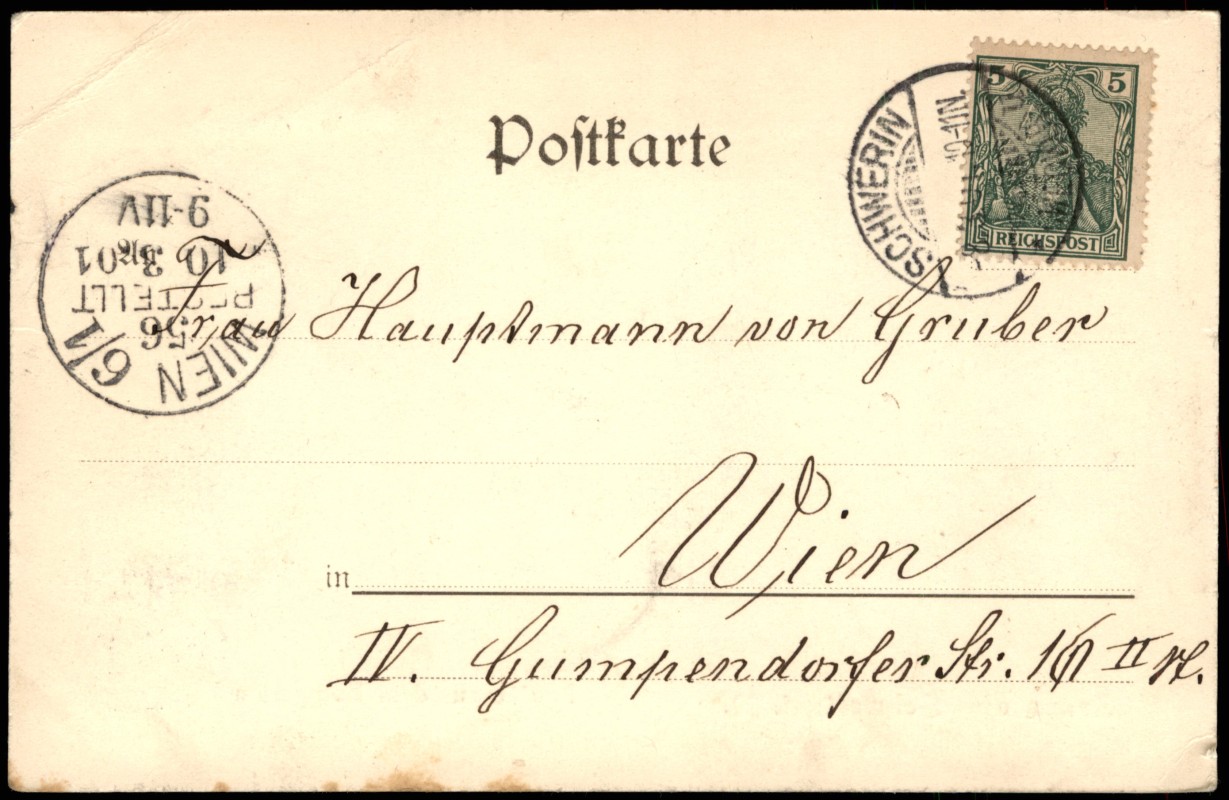 Postkarte
5 5
REICHSPOST
SCHWERIN
WIEN 6/1
56
BESTELLT
10 3 01
9-11V
Frau Hauptmann von Gruber
in Wien
IV. Gumpendorfer Str. II